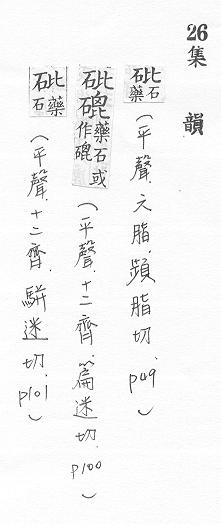 26 集韻
砒 藥石 （平聲．六脂．頻脂切．p49）
砒磇 藥石或作磇 （平聲．十二齊．篇迷切．p100）
砒 藥石 （平聲．十二齊．駢迷切．p101）